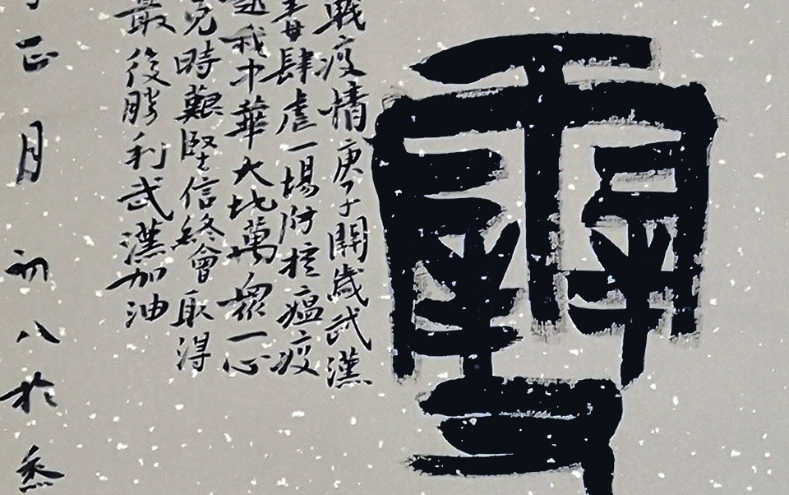 雪
戰疫情庚子開歲武漢
毒肆虐一場防控瘟疫
我中華大地萬眾一心
克時艱堅信終會取得
最後勝利武漢加油
正月初八於